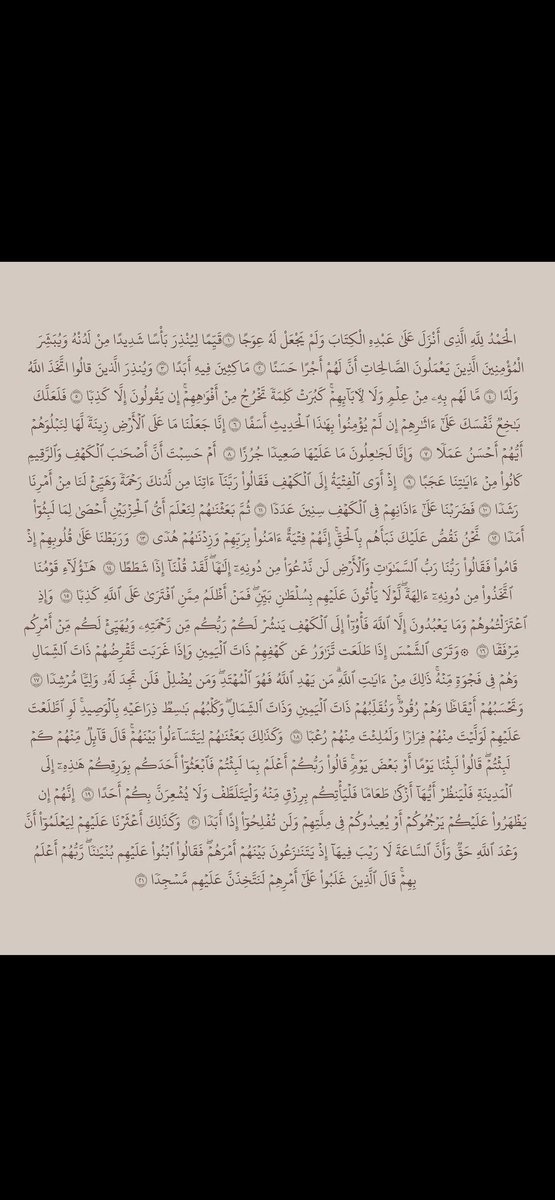 الْحَمْدُ لِلَّهِ الَّذِى أَنْزَلَ عَلَىٰ عَبْدِهِ الْكِتَابَ وَلَمْ يَجْعَلْ لَهُ عِوَجًا ١ قَيِّمًا لِيُنْذِرَ بَأْسًا شَدِيدًا مِنْ لَدُنْهُ وَيُبَشِّرَ
الْمُؤْمِنِينَ الَّذِينَ يَعْمَلُونَ الصَّالِحَاتِ أَنَّ لَهُمْ أَجْرًا حَسَنًا ٢ مَاكِثِينَ فِيهِ أَبَدًا ٣ وَيُنْذِرَ الَّذِينَ قَالُوا اتَّخَذَ اللَّهُ
وَلَدًا ٤ مَّا لَهُم بِهِۦ مِنْ عِلْمٍ وَلَا لِآبَآئِهِمْ ۚ كَبُرَتْ كَلِمَةً تَخْرُجُ مِنْ أَفْوَٰهِهِمْ ۚ إِن يَقُولُونَ إِلَّا كَذِبًا ٥ فَلَعَلَّكَ
بَٰخِعٌ نَّفْسَكَ عَلَىٰٓ ءَاثَٰرِهِمْ إِن لَّمْ يُؤْمِنُوا۟ بِهَٰذَا الْحَدِيثِ أَسَفًا ٦ إِنَّا جَعَلْنَا مَا عَلَى الْأَرْضِ زِينَةً لَّهَا لِنَبْلُوَهُمْ
أَيُّهُمْ أَحْسَنُ عَمَلًا ٧ وَإِنَّا لَجَٰعِلُونَ مَا عَلَيْهَا صَعِيدًا جُرُزًا ٨ أَمْ حَسِبْتَ أَنَّ أَصْحَٰبَ الْكَهْفِ وَالرَّقِيمِ
كَانُوا۟ مِنْ ءَايَٰتِنَا عَجَبًا ٩ إِذْ أَوَى الْفِتْيَةُ إِلَى الْكَهْفِ فَقَالُوا۟ رَبَّنَآ ءَاتِنَا مِن لَّدُنكَ رَحْمَةً وَهَيِّئْ لَنَا مِنْ أَمْرِنَا
رَشَدًا ١٠ فَضَرَبْنَا عَلَىٰٓ ءَاذَانِهِمْ فِى الْكَهْفِ سِنِينَ عَدَدًا ١١ ثُمَّ بَعَثْنَٰهُمْ لِنَعْلَمَ أَىُّ الْحِزْبَيْنِ أَحْصَىٰ لِمَا لَبِثُوٓا۟
أَمَدًا ١٢ نَّحْنُ نَقُصُّ عَلَيْكَ نَبَأَهُم بِالْحَقِّ ۚ إِنَّهُمْ فِتْيَةٌ ءَامَنُوا۟ بِرَبِّهِمْ وَزِدْنَٰهُمْ هُدًى ١٣ وَرَبَطْنَا عَلَىٰ قُلُوبِهِمْ إِذْ
قَامُوا۟ فَقَالُوا۟ رَبُّنَا رَبُّ السَّمَٰوَٰتِ وَالْأَرْضِ لَن نَّدْعُوَا۟ مِن دُونِهِۦٓ إِلَٰهًا ۖ لَّقَدْ قُلْنَآ إِذًا شَطَطًا ١٤ هَٰٓؤُلَآءِ قَوْمُنَا
اتَّخَذُوا۟ مِن دُونِهِۦٓ ءَالِهَةً ۖ لَّوْلَا يَأْتُونَ عَلَيْهِم بِسُلْطَٰنٍۭ بَيِّنٍ ۖ فَمَنْ أَظْلَمُ مِمَّنِ افْتَرَىٰ عَلَى اللَّهِ كَذِبًا ١٥ وَإِذِ
اعْتَزَلْتُمُوهُمْ وَمَا يَعْبُدُونَ إِلَّا اللَّهَ فَأْوُۥٓا۟ إِلَى الْكَهْفِ يَنشُرْ لَكُمْ رَبُّكُم مِّن رَّحْمَتِهِۦ وَيُهَيِّئْ لَكُم مِّنْ أَمْرِكُم
مِّرْفَقًا ١٦ ۞ وَتَرَى الشَّمْسَ إِذَا طَلَعَت تَّزَٰوَرُ عَن كَهْفِهِمْ ذَاتَ الْيَمِينِ وَإِذَا غَرَبَت تَّقْرِضُهُمْ ذَاتَ الشِّمَالِ
وَهُمْ فِى فَجْوَةٍ مِّنْهُ ۚ ذَٰلِكَ مِنْ ءَايَٰتِ اللَّهِ ۗ مَن يَهْدِ اللَّهُ فَهُوَ الْمُهْتَدِ ۖ وَمَن يُضْلِلْ فَلَن تَجِدَ لَهُۥ وَلِيًّا مُّرْشِدًا ١٧
وَتَحْسَبُهُمْ أَيْقَاظًا وَهُمْ رُقُودٌ ۚ وَنُقَلِّبُهُمْ ذَاتَ الْيَمِينِ وَذَاتَ الشِّمَالِ ۖ وَكَلْبُهُم بَٰسِطٌ ذِرَاعَيْهِ بِالْوَصِيدِ ۚ لَوِ اطَّلَعْتَ
عَلَيْهِمْ لَوَلَّيْتَ مِنْهُمْ فِرَارًا وَلَمُلِئْتَ مِنْهُمْ رُعْبًا ١٨ وَكَذَٰلِكَ بَعَثْنَٰهُمْ لِيَتَسَآءَلُوا۟ بَيْنَهُمْ ۚ قَالَ قَآئِلٌ مِّنْهُمْ كَمْ
لَبِثْتُمْ ۖ قَالُوا۟ لَبِثْنَا يَوْمًا أَوْ بَعْضَ يَوْمٍ ۚ قَالُوا۟ رَبُّكُمْ أَعْلَمُ بِمَا لَبِثْتُمْ فَابْعَثُوٓا۟ أَحَدَكُم بِوَرِقِكُمْ هَٰذِهِۦٓ إِلَى
الْمَدِينَةِ فَلْيَنظُرْ أَيُّهَآ أَزْكَىٰ طَعَامًا فَلْيَأْتِكُم بِرِزْقٍ مِّنْهُ وَلْيَتَلَطَّفْ وَلَا يُشْعِرَنَّ بِكُمْ أَحَدًا ١٩ إِنَّهُمْ إِن
يَظْهَرُوا۟ عَلَيْكُمْ يَرْجُمُوكُمْ أَوْ يُعِيدُوكُمْ فِى مِلَّتِهِمْ وَلَن تُفْلِحُوٓا۟ إِذًا أَبَدًا ٢٠ وَكَذَٰلِكَ أَعْثَرْنَا عَلَيْهِمْ لِيَعْلَمُوٓا۟ أَنَّ
وَعْدَ اللَّهِ حَقٌّ وَأَنَّ السَّاعَةَ لَا رَيْبَ فِيهَآ إِذْ يَتَنَٰزَعُونَ بَيْنَهُمْ أَمْرَهُمْ ۖ فَقَالُوا۟ ابْنُوا۟ عَلَيْهِم بُنْيَٰنًا ۖ رَّبُّهُمْ أَعْلَمُ
بِهِمْ ۚ قَالَ الَّذِينَ غَلَبُوا۟ عَلَىٰٓ أَمْرِهِمْ لَنَتَّخِذَنَّ عَلَيْهِم مَّسْجِدًا ٢١